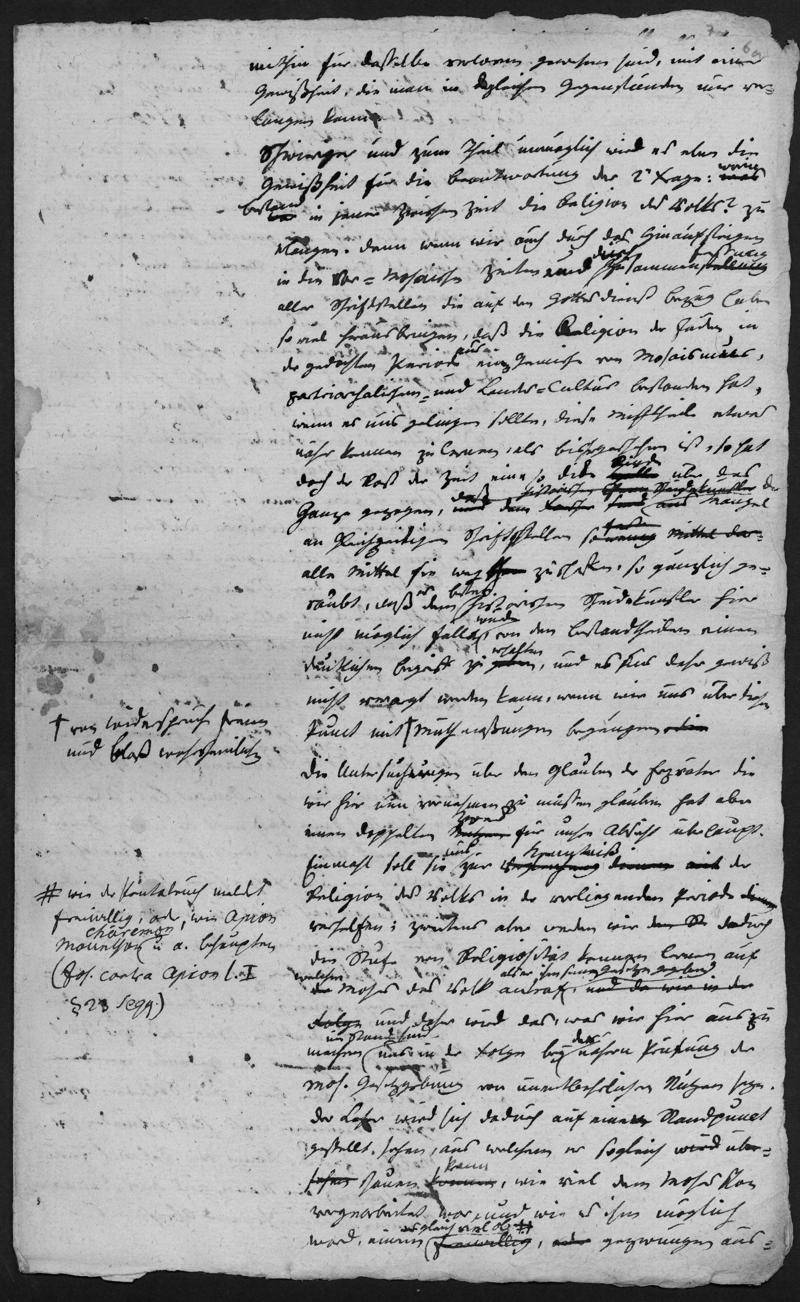 mithin für dasselbe verloren gewesen sind, mit einer
Gewißheit, die man in dergleichen Gegenständen nur ver=
langen kann.
Schwieriger und zum Theil unmöglich wird es aber die
Gewißheit für die Beantwortung der 2 Frage: worin
bestand in jener Zeit die Religion des Volks? zu
erlangen. Denn wenn wir auch durch das Hinaufsteigen
in die Vor=Mosaische Zeiten und durch Zusammenstellung
aller Schriftstellen die auf den Gottesdienst bezug haben
so viel herausbringen, daß die Religion der Juden in
der gedachten Periode aus ein Gemische von Mosaismus,
patriarchalischen und Landes=Cultur bestanden hat,
wenn es uns gelingen sollte, diese etwas
näher kennen zu lernen, als bisher geschehen ist, so hat
doch der Rost der Zeit eine so dicke Rinde über das
Ganze gezogen, und Mangel
an gleichzeitigen Schriftstellen
alle Mittel sie weg zu schaffen, so gänzlich ge=
raubt, daß es dem besten historischen Scheidekünstler hier
nicht möglich werden von den Bestandtheilen einen
deutlichen Begriff zu machen, und es uns daher gewiß
nicht verargt werden kann, wenn wir uns über diesen
Punct mit † Muthmaßungen begnügen
† von Widerspruch freien
und bloß wahrscheinlichen
Die Untersuchungen über den Glauben der Erzväter die
wir hier nun vornehmen zu müssen glauben hat aber
einen doppelten Zweck für unsre Absicht überhaupt.
Einmahl soll sie uns zur Kenntniß der
Religion des Volks in der vorliegenden Periode
verhelfen; zweitens aber werden wir dadurch
die Stufe von Religiosität kennen lernen auf
welcher Moses das Volk antraf, als er ihm seine Gesetze gab
und daher wird das, was wir hier auszu
machen im Stande sind in der Folge bey der nähern Prüfung der
Mos. Gesetzgebung von unentbehrlichen Nutzen seyn.
Der Leser wird sich dadurch auf einen Standpunct
gestellt sehen, aus welchem er sogleich über=
schauen kann, wie viel dem Moses schon
vorgearbeitet war, und wie es ihm möglich
ward, einem (es gleich viel ob #) freiwillig, oder gezwungen aus=
# wie der Pentateuch meldet
freiwillig, oder, wie Apion
Chäremon
Manethon u. a. behaupten
(Jos. contra Apion l. I
§ 28 seqq.)